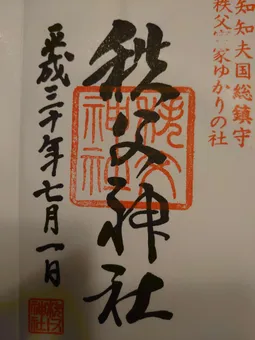 知知夫国総鎮守
秩父宮家ゆかりの社
秩父神社
秩父神社
平成三十年七月一日